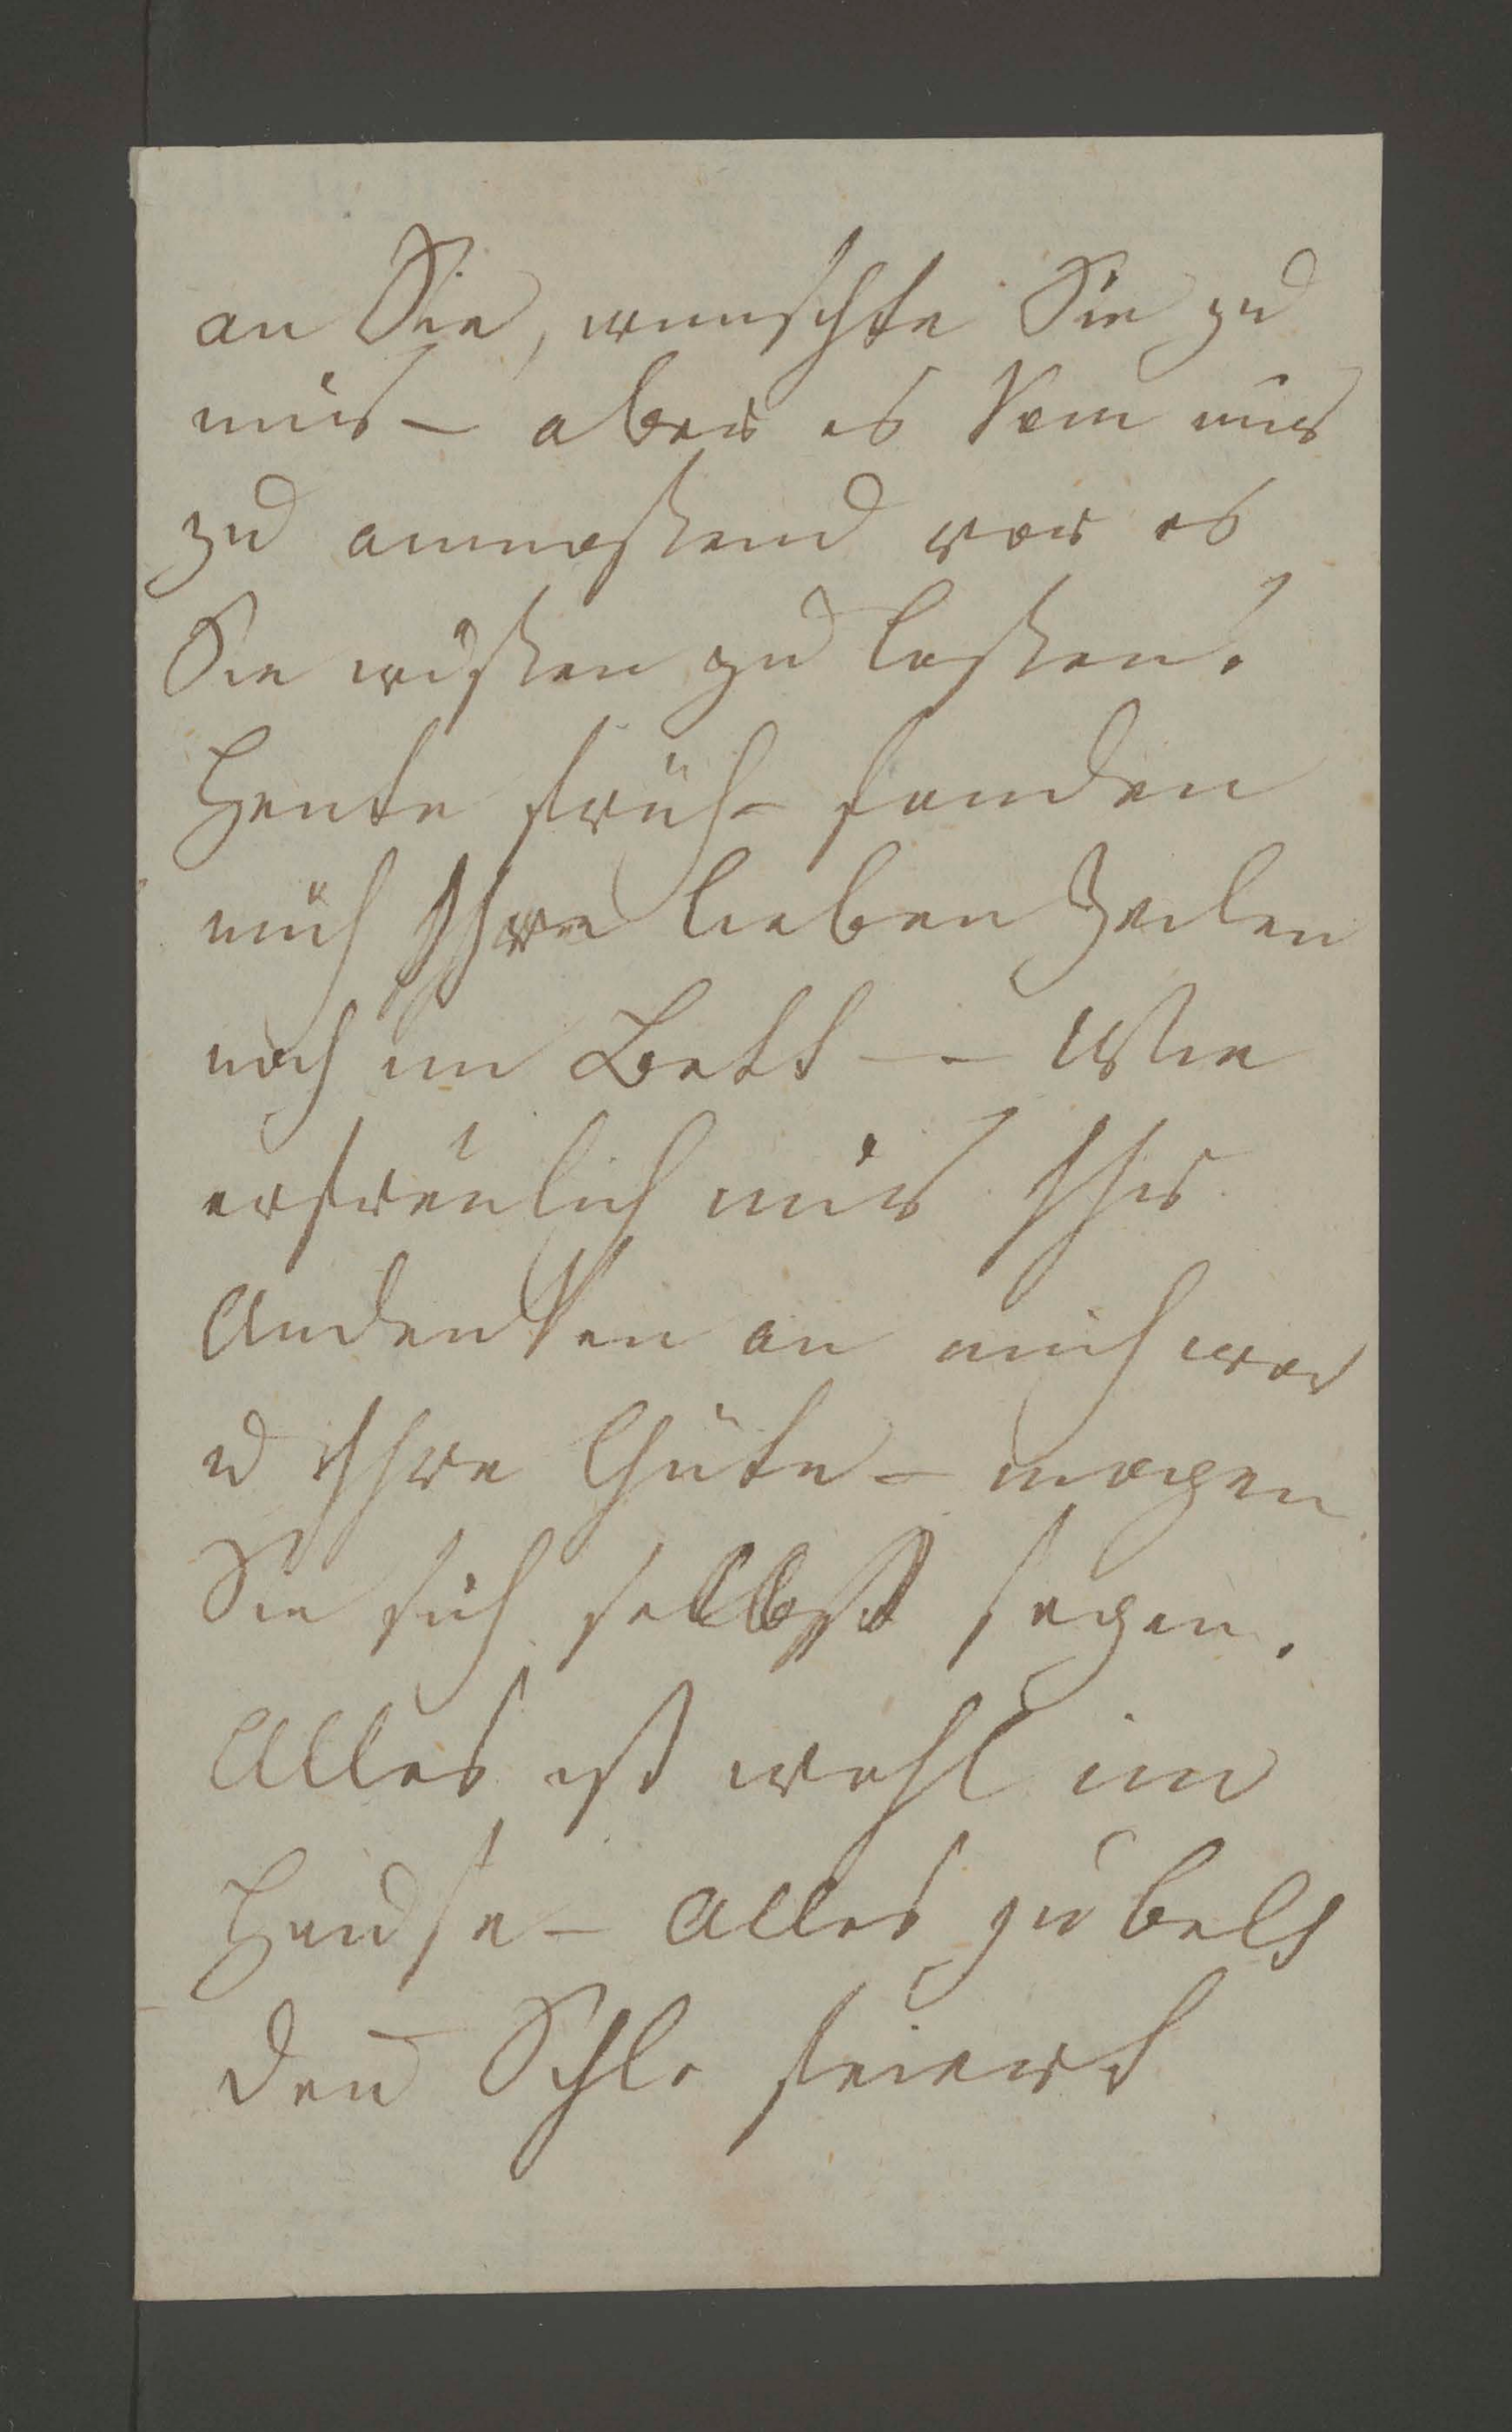 an Sie, wunschte Sie zu
mir – aber es kam mir
zu anmaßend vor es
Sie wißen zu laßen.
Heute früh – fanden
mich Ihre lieben Zeilen
noch im Bett – – Wie
erfreulich mir Ihr
Andenken an mich war
u Ihre Güte – mögen
Sie sich selbst sagen.
Alles ist wohl im
Hause – Alles jubelt
den Schl. feiert